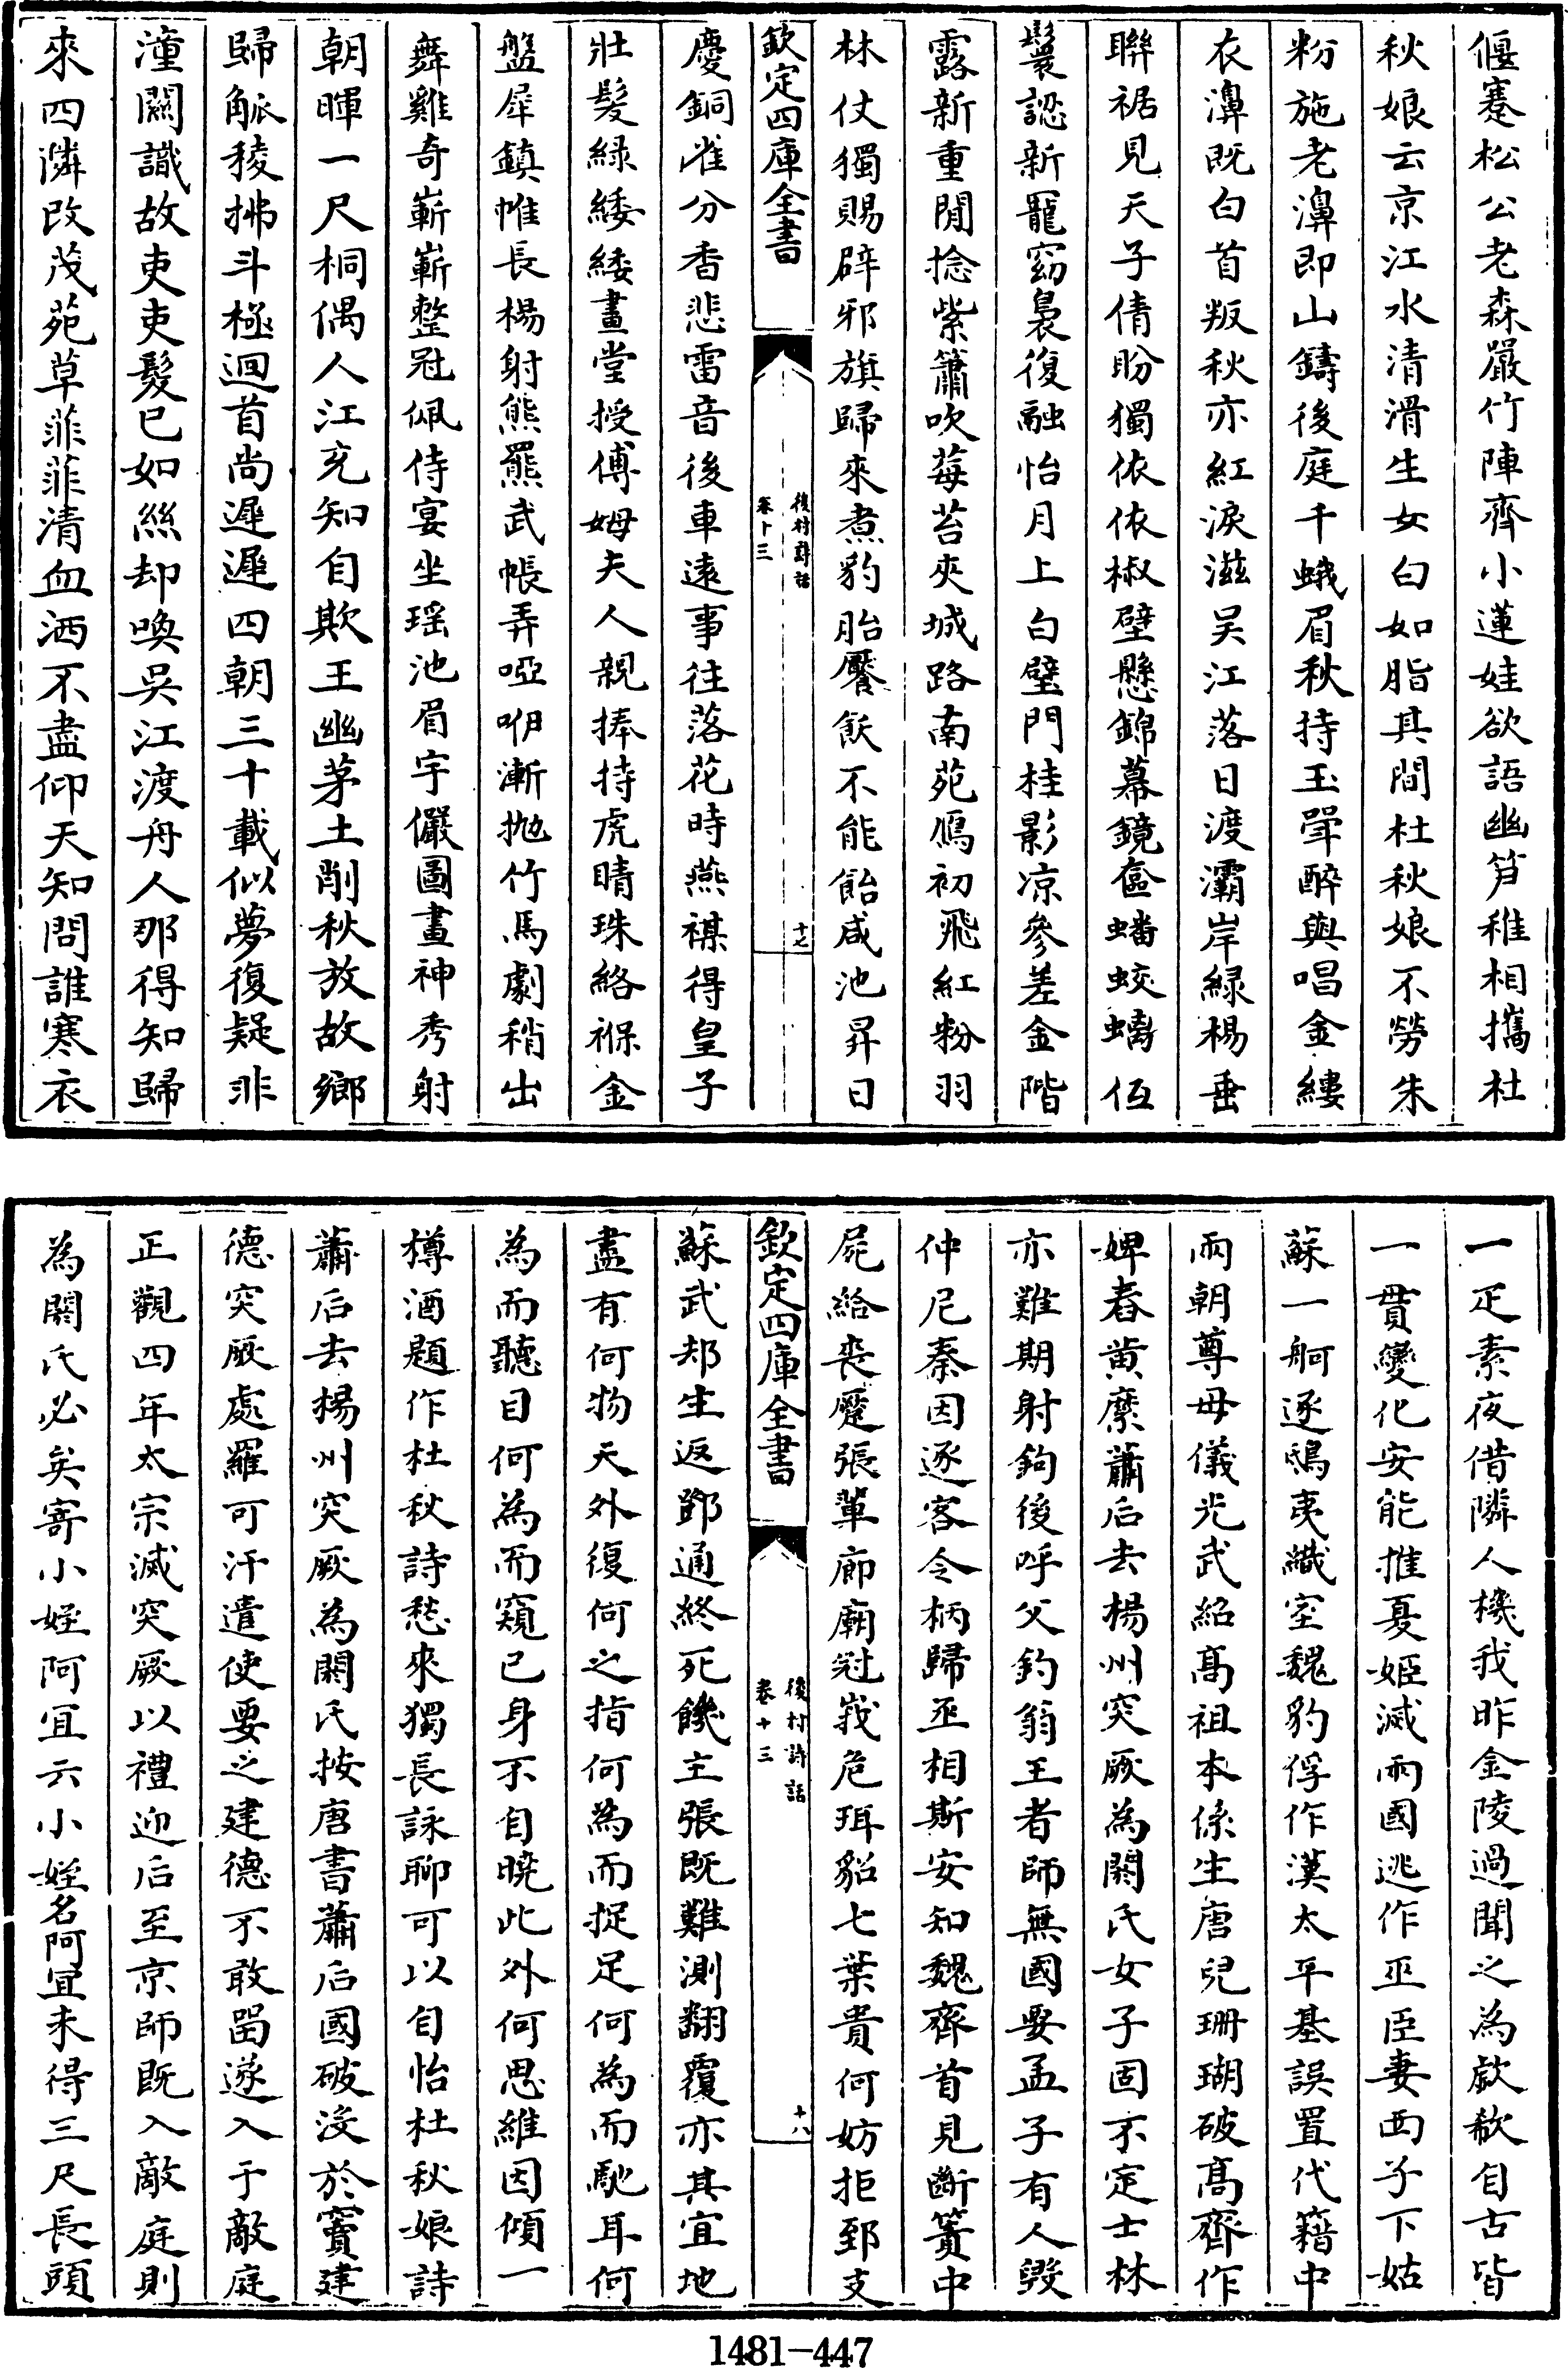 偃蹇松公老森嚴竹陣齊小蓮娃欲語幽笋稚相攜杜
秋娘云京江水清滑生女白如脂其間杜秋娘不勞朱
粉施老濞即山鑄後庭千蛾眉秋持玉斝醉與唱金縷
衣濞既白首叛秋亦紅淚滋吴江落日渡灞岸緑楊垂
聯裾見天子倩盼獨依依椒壁懸錦幕鏡奩蟠蛟螭低
鬟認新寵窈裊復融怡月上白璧門桂影凉參差金階
露新重閒捻紫簫吹莓苔夾城路南苑鴈初飛紅粉羽
林仗獨賜辟邪旗歸來煮豹胎饜飫不能飴咸池昇日
欽定四庫全書
後村詩話
卷十三
十七
慶銅雀分香悲雷音後車遠事往落花時燕禖得皇子
壯髮緑緌緌畫堂授傅姆夫人親捧持虎睛珠絡褓金
盤犀鎮帷長楊射熊羆武帳弄啞咿漸抛竹馬劇稍出
舞雞奇嶄嶄整冠佩侍宴坐瑶池眉宇儼圖畫神秀射
朝暉一尺桐偶人江充知自欺王幽茅土削秋放故鄉
歸觚稜拂斗極迴首尚遲遲四朝三十載似夢復疑非
潼關識故吏吏髮已如絲却喚吳江渡舟人那得知歸
來四隣改茂苑草菲菲清血洒不盡仰天知問誰寒衣
一疋素夜借隣人機我昨金陵過聞之為歔欷自古皆
一貫變化安能推夏姬滅兩國逃作巫臣妻西子下姑
蘇一舸逐鴟夷織室魏豹俘作漢太平基誤置代籍中
兩朝尊母儀光武紹髙祖本係生唐兒珊瑚破髙齊作
婢舂黄糜蕭后去楊州突厥為閼氏女子固不定士林
亦難期射鉤後呼父釣翁王者師無國要孟子有人毁
仲尼秦因逐客令柄歸丞相斯安知魏齊首見斷簀中
屍給喪蹷張輩廊廟冠峩危珥貂七葉貴何妨拒郅支
欽定四庫全書
後村詩話
卷十三
十八
蘇武却生返鄧通終死饑主張既難測翻覆亦其宜地
盡有何物天外復何之指何為而捉足何為而馳耳何
為而聽目何為而窺已身不自曉此外何思維因傾一
樽酒題作杜秋詩愁來獨長詠聊可以自怡杜秋娘詩
蕭后去楊州突厥為閼氏按唐書蕭后國破没於竇建
德突厥處羅可汗遣使要之建德不敢留遂入于敵庭
正觀四年太宗滅突厥以禮迎后至京師既入敵庭則
為閼氏必矣寄小姪阿宜云小姪名阿宜未得三尺長頭
1481-447